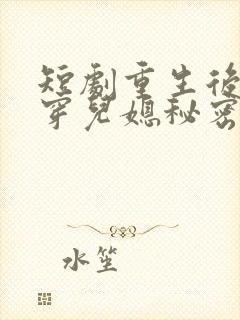 短劇重生後
穿兒媳秘密
水笙